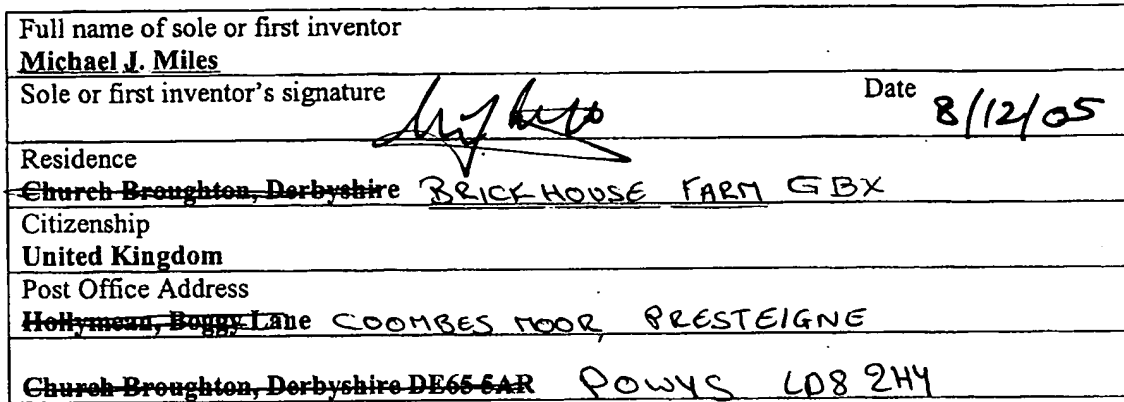 Full name of sole or first inventor
Michael J. Miles
Sole or first inventor's signature Date 8/12/05
Residence
Church Broughton, Derbyshire BRICKHOUSE FARM GBX
Citizenship
United Kingdom
Post Office Address
Hollymean, Boggy Lane COOMBES MOOR, PRESTEIGNE
Church Broughton, Derbyshire DE65 5AR POWYS LD8 2HY